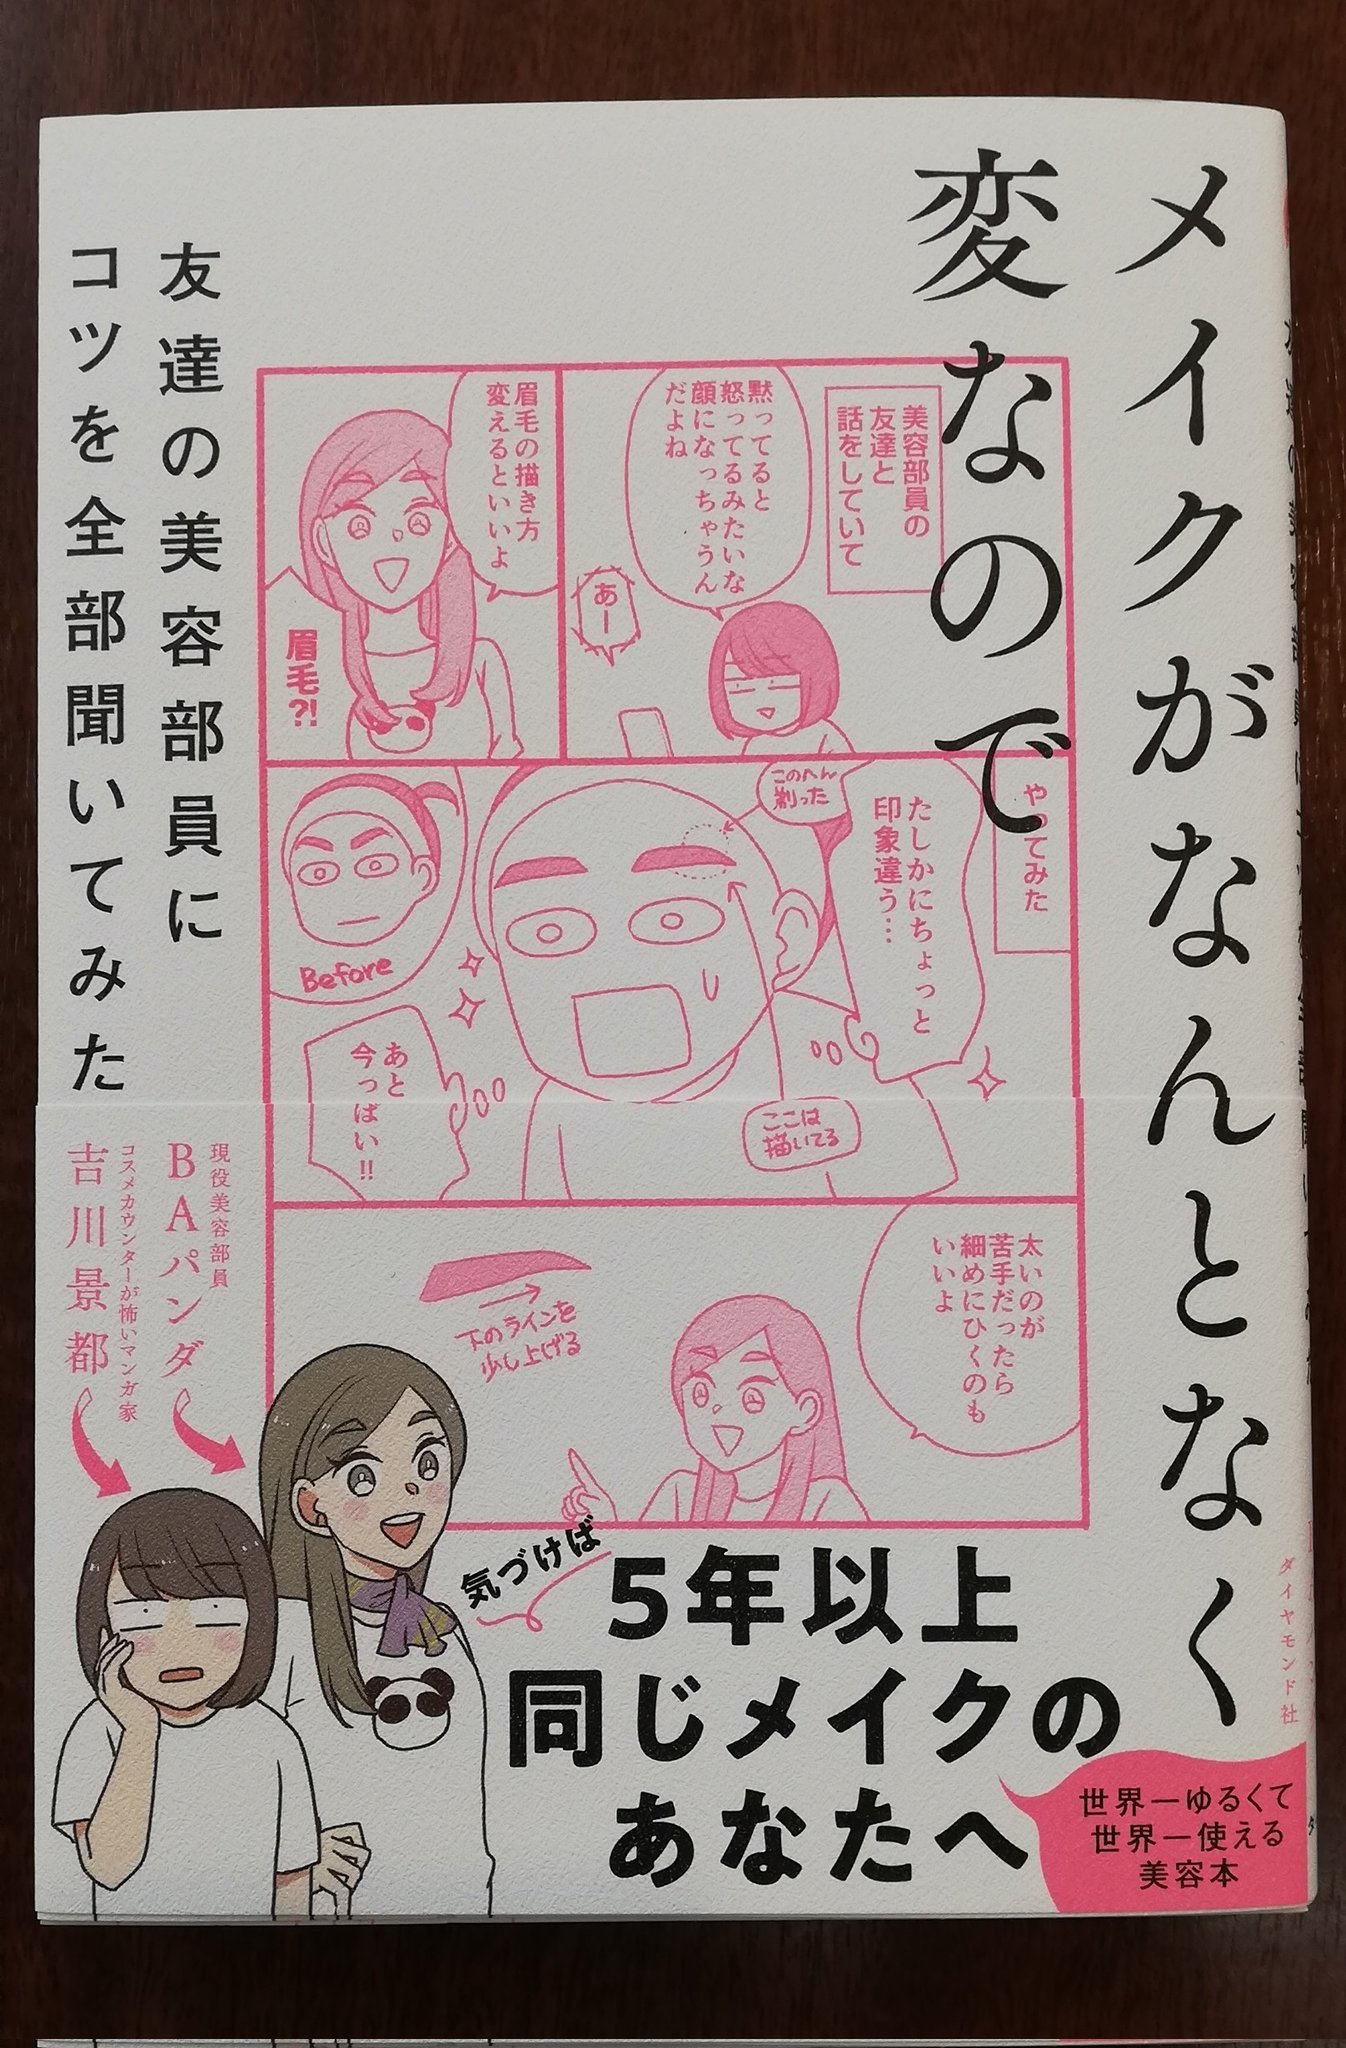 メイクがなんとなく
変なので
友達の美容部員に
コツを全部聞いてみた
美容部員の
友達と
話をしていて
黙ってると
怒ってるみたいな
顔になっちゃうん
だよね
あー
眉毛の描き方
変えるといいよ
眉毛?!
やってみた
たしかにちょっと
印象違う…
このへん
剃った
Before
あと
今っぽい!!
ここは
描いてる
太いのが
苦手だったら
細めにひくのも
いいよ
下のラインを
少し上げる
現役美容部員
BAパンダ
コスメカウンターが怖いマンガ家
吉川景都
気づけば
5年以上
同じメイクの
あなたへ
世界一ゆるくて
世界一使える
美容本
ダイヤモンド社